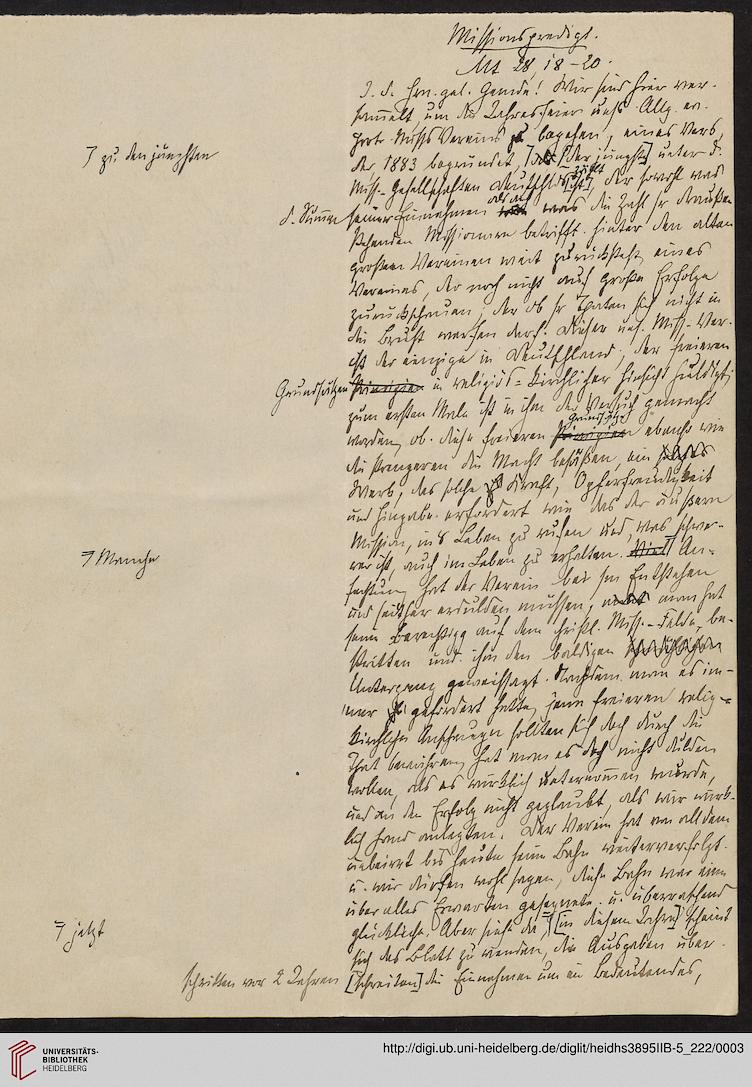 Missionspredigt.
Mt 28, 18-20.
J. d. Hrn. gel. Gemde! Wir sind hier ver-
sammelt um die Jahresfeier uns. Allg. ev.
prot. Miss. Vereins zu begehen, eines Vereins,
der 1883 begründet, der jüngste unter d.
⌉ zu den jüngsten
Miss.-Gesellschaften Deutschlds ist, der sowohl was
d. Summe seiner Einnahmen als auch was die Zahl sr draußen
stehenden Missionare betrifft, hinter den alten
großen Vereinen weit zurücksteht, eines
Vereines, der noch nicht auf große Erfolge
zurückschauen, der ob sr Thaten sich nicht in
die Brust werfen darf. Dieser uns. Miss.-Ver.
ist der einzige in Deutschland, der freieren
Grundsätzen Prinzipien in religiös-kirchlicher Hinsicht huldigt;
zum ersten Male ist in ihm der Versuch gemacht
Grundsätze
worden, ob diese freieren Prinzipien ebenso wie
die strengeren die Macht besäßen, ein
Werk, das solche Kraft, Opferfreudigkeit
und Hingabe erfordert wie das der äußern
Mission, ins Leben zu rufen und, was schwe-
rer ist, auch im Leben zu erhalten. Viel An-
⌉ Manche
fechtung hat der Verein bei sm Entstehen
und seither erdulden müssen, man hat
seine Berechtigg auf dem christl. Miss.-Felde be-
stritten und ihm den baldigen
Untergang geweissagt. Nachdem man es im-
mer gefordert hatte, jene freieren relig-
kirchlichen Anschauungen sollten sich doch durch die
That bewähren, hat man es doch nicht dulden
wollen, als es wirklich unternommen wurde,
und an den Erfolg nicht geglaubt, als wir wirk-
lich Hand anlegten. Der Verein hat von all dem
unbeirrt bis heute seine Bahn weiterverfolgt
u. wir dürfen wohl sagen, diese Bahn war eine
über alles Erwarten gesegnete u. überraschend
glückliche. Aber sieht da, [in diesem Jahre] scheint
⌉ jetzt
sich das Blatt zu wenden, die Ausgaben über-
schritten vor 2 Jahren [schreiten] die Einnahmen um ein Bedeutendes,
UNIVERSITÄTS-
BIBLIOTHEK
HEIDELBERG
http://digi.ub.uni-heidelberg.de/diglit/heidhs3895IIB-5_222/0003